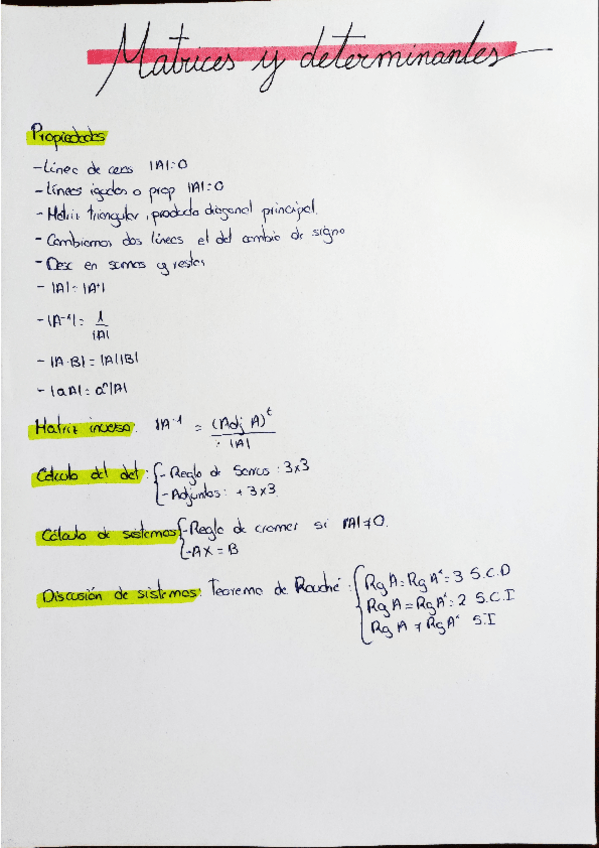 Matrices y determinantes
Propiedades
- Línea de ceros |A|=0
- Líneas iguales o prop |A|=0
- Matriz triangular, producto diagonal principal.
- Cambiamos dos líneas el det cambia de signo
- Desc en sumas y restas
- |A|=|Aᵗ|
- |A⁻¹|= 1/|A|
- |A·B|=|A||B|
- |aA|=aⁿ|A|
Matriz inversa: |A⁻¹ = (Adj A)ᵗ/|A|
Cálculo del det: { - Regla de Sarrus: 3x3
- Adjuntos: + 3x3
Cálculo de sistemas { - Regla de cramer si |A|≠0.
- AX=B
Discusión de sistemas: Teorema de Rouché: { Rg A = Rg A* = 3 S.C.D
Rg A = Rg A* = 2 S.C.I
Rg A ≠ Rg A* S.I